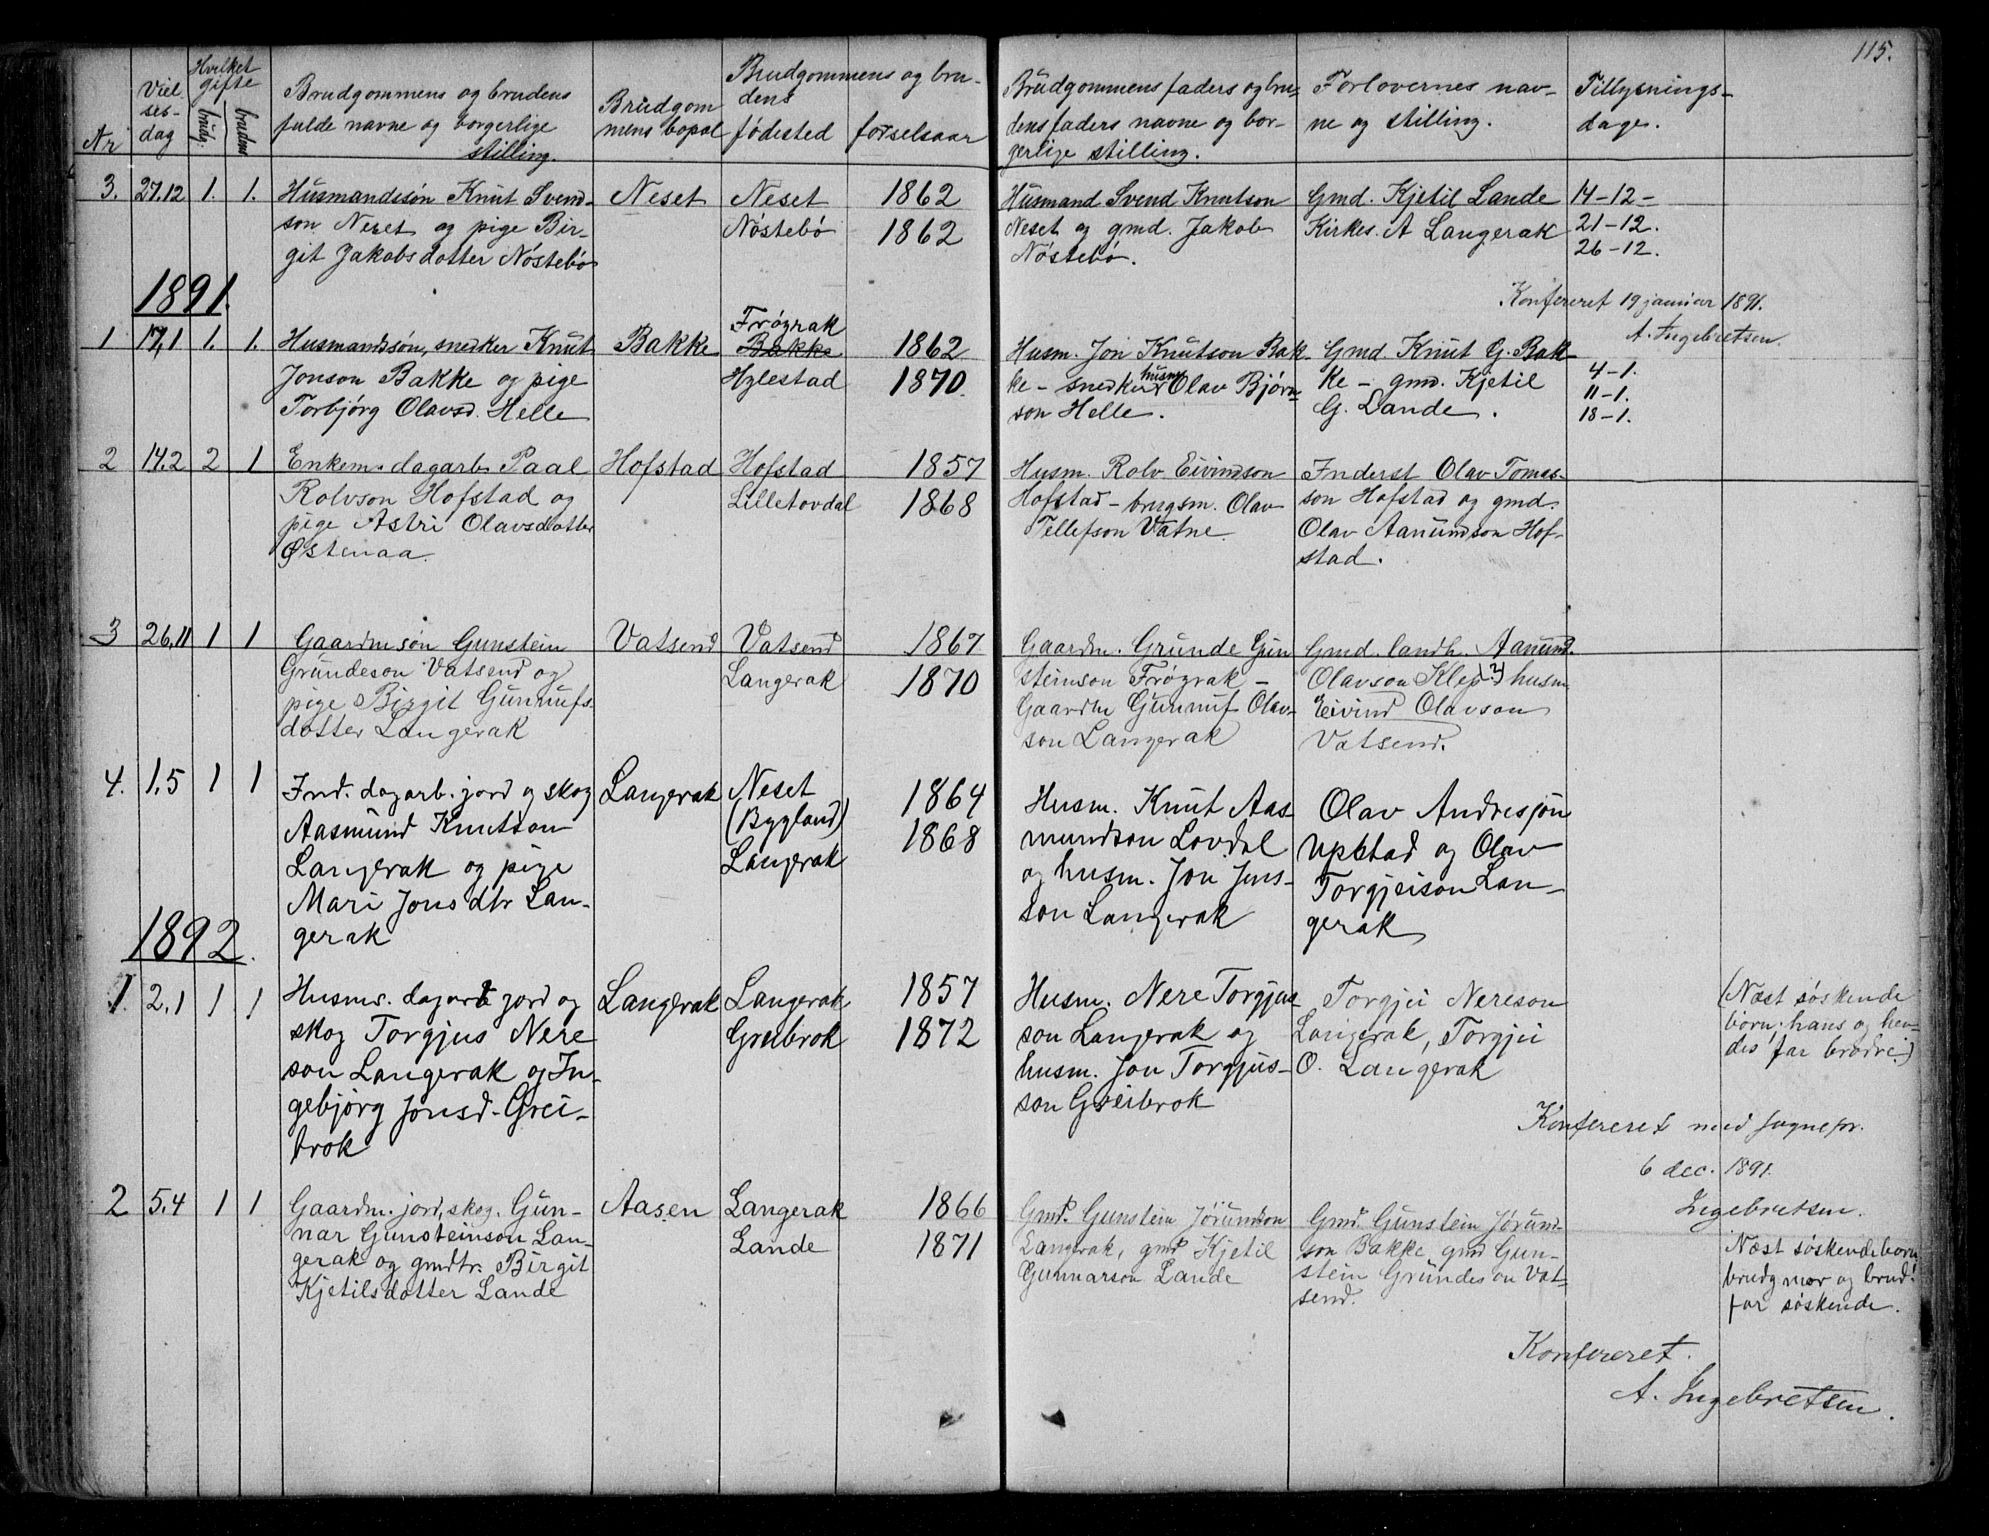 115.
Nr
Viel
ses-
dag
Hvilket
gifte
brudg.
brudens
Brudgommens og brudens
fulde navne og borgerlige
stilling.
Brudgom
mens bopæl
Brudgommens og bru-
dens
fødested
fødselsaar
Brudgommens faders og bru-
dens faders navne og bor-
gerlige stilling.
Forlovernes nav-
ne og stilling.
Tillysnings-
dage.
3. 27.12 1. 1.
Husmandssøn Knut Svend-
son Neset og pige Bir-
git Jakobsdotter Nöstebö
Neset
Neset
Nöstebö
1862
1862
Husmand Svend Knutson
Neset og gmd. Jakob
Nöstebö.
Gmd. Kjetil Lande
Kirkes. A Langerak
14-12-
21-12.
26-12.
1891.
Konfereret 19 januar 1891.
A. Ingebretsen.
1 17,1 1. 1.
Husmandssøn, snedker Knut
Jonson Bakke og pige
Torbjörg Olavsd. Helle
Bakke
Frögrak
Bakke
Hylestad
1862
1870.
Husm. Jon Knutson Bak-
ke - snedker husm. Olav Bjørn-
son Helle.
Gmd Knut G. Bak-
ke - gmd. Kjetil
G. Lande.
4-1.
11-1.
18-1.
2 14.2 2 1
Enkem. dagarb. Paal
Rolvson Hofstad og
pige Astri Olavsdotter
Østenaa.
Hofstad
Hofstad
Lilletovdal
1857
1868
Husm. Rolv Eivindson
Hofstad - brugsm. Olav
Tellefson Vatne.
Inderst Olav Tomas-
son Hofstad og gmd.
Olav Aanundson Hof-
stad.
3 26.11 1 1
Gaardmsøn Gunstein
Grundeson Vatsend og
pige Birgit Gunnufs-
dotter Langerak
Vatsend
Vatsend
Langerak
1867
1870
Gaardm. Grunde Gun
steinson Frögrak -
Gaardm Gunnuf Olav-
son Langerak
Gmd. landh. Aanund
Olavson Klep (?) husm
Eivind Olavson
Vatsend.
4. 1.5 1 1
Ind. dagarb. jord og skog
Aasmund Knutson
Langerak og pige
Mari Jonsdtr Lan-
gerak
Langerak
Neset
(Bygland)
Langerak
1864
1868
Husm. Knut Aas-
mundson Lovdal
og husm. Jon Jens-
son Langerak
Olav Andresjøn
Upstad og Olav
Torgjeison Lan-
gerak
1892.
1. 2.1 1 1
Husms. dagarb jord og
skog Torgjus Nere
son Langerak og In-
gebjörg Jonsd. Grei-
brok
Langerak
Langerak
Greibrok
1857
1872
Husm. Nere Torgjus-
son Langerak og
husm. Jon Torgjus-
son Greibrok
Torgjei Nereson
Langerak, Torgjei
O. Langerak
(Næst søskende
børn; hans og hen-
des far brødre)
Konfereret med sognepr.
6 dec. 1891.
Ingebretsen.
2 5.4 1 1
Gaardm. jord, skog. Gun-
nar Gunsteinson Lan-
gerak og gmdtr. Birgit
Kjetilsdotter Lande
Aasen
Langerak
Lande
1866
1871
Gmd. Gunstein Jørundson
Langerak, gmd Kjetil
Gunnarson Lande
Gmd. Gunstein Jørund-
son Bakke, gmd Gun-
stein Grundeson Vat-
send.
Næst søskendebørn
brudg mor og brud.
far søskende.
Konfereret.
A. Ingebretsen.